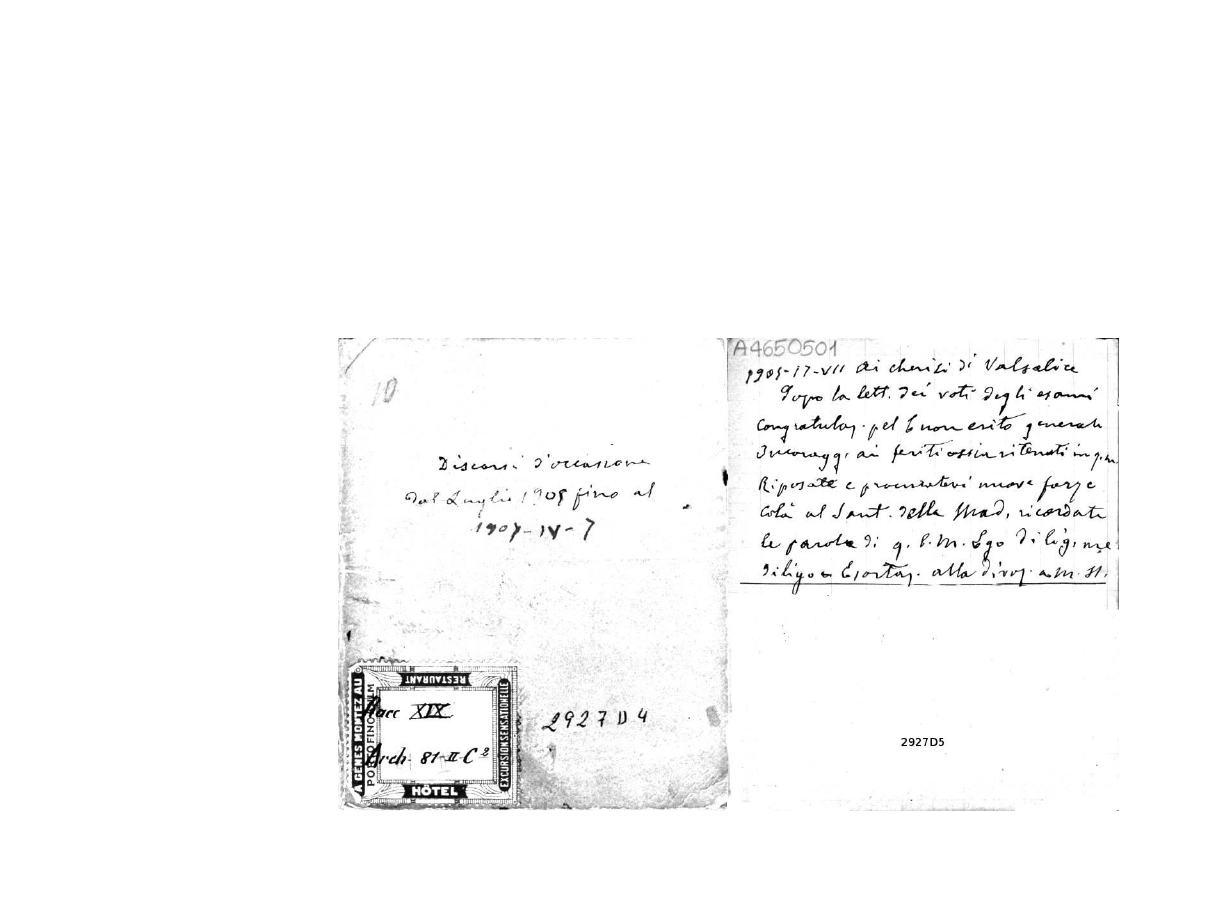 10
Discorsi d'occasione
dal Luglio 1905 fino al
1907-IV-7
RESTAURANT
A GENES MONTEZ AU
PORTOFINO KULM
EXCURSION SENSATIONELLE
HÔTEL
Facc XIX
Arch. 81-II C²
2927 D4
A4650501
1905-17-VII Ai chierici di Valsalice
Dopo la lett. dei voti degli esami
Congratulaz. pel buon esito generale
Incoragg. ai feriti ossia ritenuti in
Riposate e procuratevi nuove forze
colà al Sant. della Mad, ricordate
le parole di q. b. M. Ego diligentes me
diligo Esortaz. alla divoz. a M. SS.
2927D5